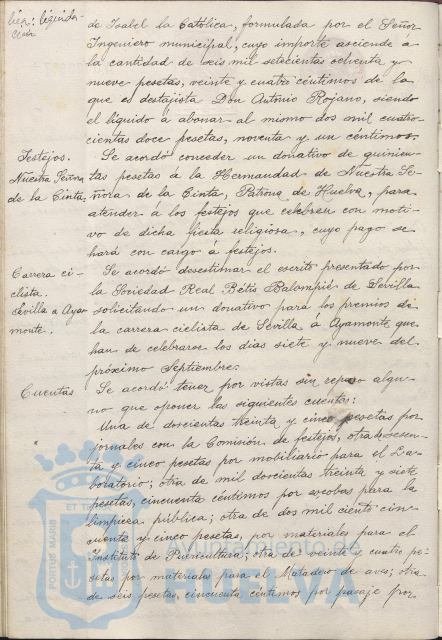 liza: liquida-
ción
de Isabel la Católica, formulada por el Señor
Ingeniero municipal, cuyo importe asciende a
la cantidad de seis mil setecientas ochenta y
nueve pesetas, veinte y cuatro céntimos de la
que es destajista Don Antonio Rojano, siendo
el líquido a abonar al mismo dos mil cuatro-
cientas doce pesetas, noventa y un céntimos.
Festejos.
Nuestra Señora
de la Cinta.
Se acordó conceder un donativo de quinien-
tas pesetas á la Hermandad de Nuestra Se-
ñora de la Cinta, Patrona de Huelva, para
atender a los festejos que celebren con moti-
vo de dicha fiesta religiosa, cuyo pago se
hará con cargo á festejos.
Carrera ci-
clista.
Sevilla a Aya-
monte.
Se acordó desestimar el escrito presentado por
la Sociedad Real Bétis Balompié de Sevilla
solicitando un donativo para los premios de
la carrera ciclista de Sevilla á Ayamonte que
han de celebrarse los días siete y nueve del
próximo Septiembre.
Cuentas
Se acordó tener por vistas sin reparo algu-
no que oponer las siguientes cuentas:
Una de doscientas treinta y cinco pesetas por
jornales con la Comisión de festejos, otra de sesen-
ta y cinco pesetas por mobiliario para el La-
boratorio; otra de mil doscientas treinta y siete
pesetas, cincuenta céntimos por escobas para la
limpieza pública; otra de dos mil ciento cin-
cuenta y cinco pesetas, por materiales para el
Instituto de Puericultura; otra de veinte y cuatro pe-
setas por materiales para el Matadero de aves; otra
de seis pesetas, cincuenta céntimos por pasaje por
PORTUS MARIS
ET T
Ayuntamiento de
HUELVA